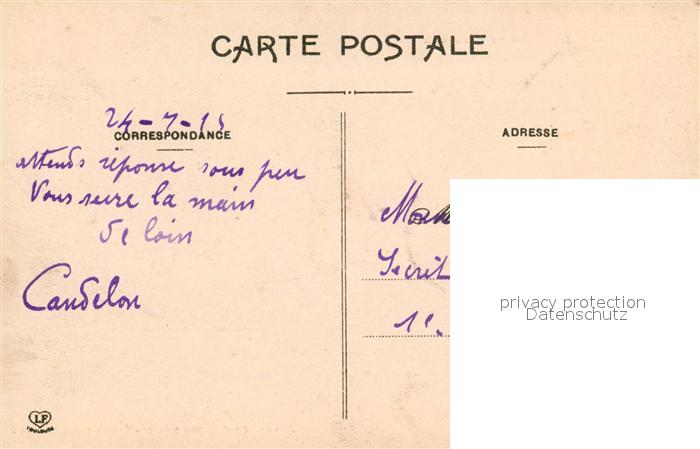 CARTE POSTALE
24-7-15
CORRESPONDANCE
attends réponse sous peu
Vous serre la main
de loin
Candelon
ADRESSE
Secrét
1e.
privacy protection
Datenschutz
LF
TOULOUSE